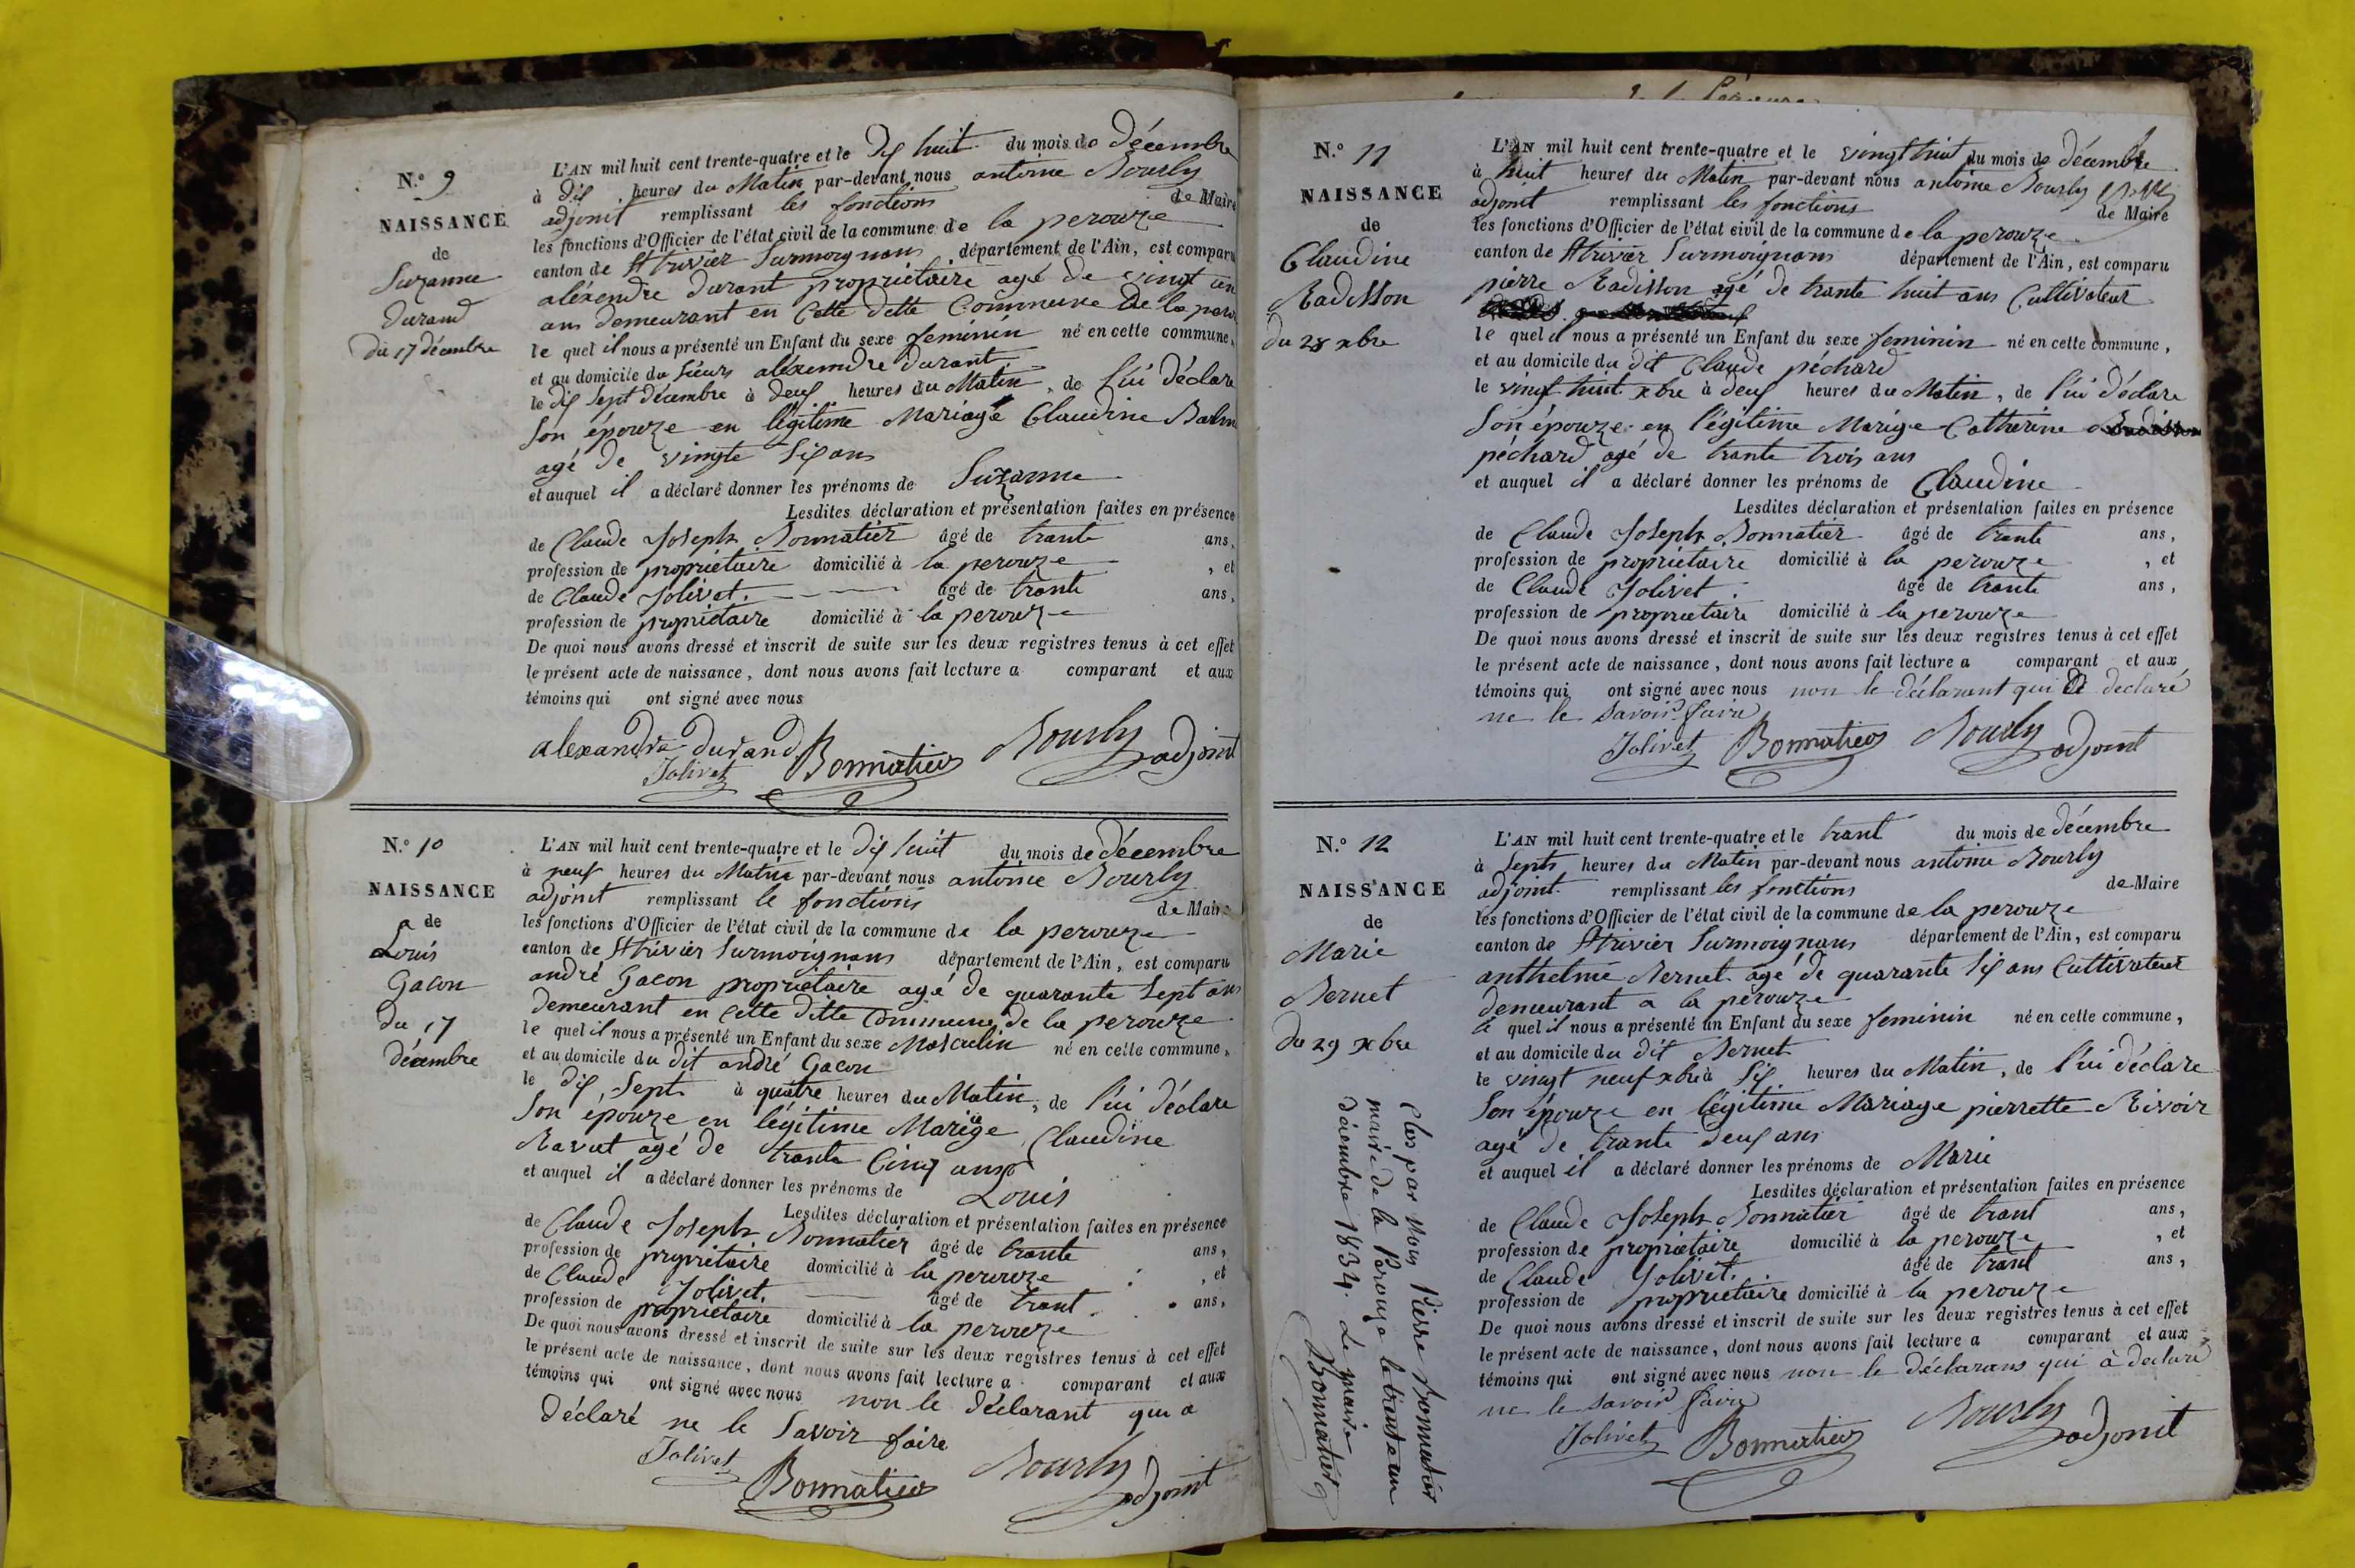 N.° 9
NAISSANCE
de
Suzanne
durand
du 17 décembre
L'AN mil huit cent trente-quatre et le dix huit du mois de décembre
à dix heures du Matin par-devant nous antoine Bourly
adjoint remplissant les fonctions de Maire
les fonctions d'Officier de l'état civil de la commune de la perouze
canton de St trivier Surmoignans, département de l'Ain, est comparu
aléxendre durant propriétaire agé de vingt
ans demeurant en Cette ditte Commune de la
le quel il nous a présenté un Enfant du sexe feminin né en cette commune,
et au domicile du Sieurs aléxendre durant
le dix Sept décembre à deux heures du Matin, de lui déclare
Son épouze en légitime Mariage Claudine
agé de vingte Six ans
et auquel il a déclaré donner les prénoms de Suzanne
Lesdites déclaration et présentation faites en présence
de Claude Joseph Bonnatier âgé de trante ans,
profession de propriétaire domicilié à la perouze, et
de Claude Jolivet. âgé de trante ans,
profession de propriétaire domicilié à la perouze
De quoi nous avons dressé et inscrit de suite sur les deux registres tenus à cet effet
le présent acte de naissance, dont nous avons fait lecture a comparant et aux
témoins qui ont signé avec nous
alexandre durand Bourly
Jolivet Bonnatier adjoint
N.° 10
NAISSANCE
de
Louis
Gacon
du 17
décembre
L'AN mil huit cent trente-quatre et le dix huit du mois de décembre
à neuf heures du Matin par-devant nous antoine Bourly
adjoint remplissant le fonctions de Maire
les fonctions d'Officier de l'état civil de la commune de la perouze
canton de St trivier Surmoignans département de l'Ain, est comparu
andré Gacon propriétaire agé de quarante Sept ans
demeurant en Cette ditte Commune de la perouze
le quel il nous a présenté un Enfant du sexe Masculin né en cette commune,
et au domicile du dit andré Gacon
le dix Sept à quatre heures du Matin, de lui déclare
Son épouze en légitime Mariage Claudine
Ravat agé de trante Cinq ans
et auquel il a déclaré donner les prénoms de Louis
Lesdites déclaration et présentation faites en présence
de Claude Joseph Bonnatier âgé de trante ans,
profession de propriétaire domicilié à la perouze, et
de Claude Jolivet. âgé de trant ans,
profession de propriétaire domicilié à la perouze
De quoi nous avons dressé et inscrit de suite sur les deux registres tenus à cet effet
le présent acte de naissance, dont nous avons fait lecture a comparant et aux
témoins qui ont signé avec nous non le déclarant qui a
déclaré ne le Savoir faire
Jolivet Bonnatier Bourly adjoint
N.° 11
NAISSANCE
de
Claudine
Radisson
du 28 xbre
L'AN mil huit cent trente-quatre et le vingt huit du mois de décembre
à huit heures du Matin par-devant nous antoine Bourly
adjoint remplissant les fonctions de Maire
les fonctions d'Officier de l'état civil de la commune de la perouze
canton de St trivier Surmoignans département de l'Ain, est comparu
pierre Radisson agé de trante huit ans Cultivateur
le quel il nous a présenté un Enfant du sexe feminin né en cette commune,
et au domicile du dit Claude péchard
le vingt huit xbre à deux heures du Matin, de lui déclare
Son épouze en légitime Marige Catherine
péchard agé de trante trois ans
et auquel il a déclaré donner les prénoms de Claudine
Lesdites déclaration et présentation faites en présence
de Claude Joseph Bonnatier âgé de trante ans,
profession de propriétaire domicilié à la perouze, et
de Claude Jolivet. âgé de trante ans,
profession de propriétaire domicilié à la perouze
De quoi nous avons dressé et inscrit de suite sur les deux registres tenus à cet effet
le présent acte de naissance, dont nous avons fait lecture a comparant et aux
témoins qui ont signé avec nous non le déclarant qui a declaré
ne le Savoir faire
Jolivet Bonnatier Bourly adjoint
N.° 12
NAISSANCE
de
Marie
Bernet
du 29 xbre
L'AN mil huit cent trente-quatre et le trant du mois de décembre
à Septs heures du Matin par-devant nous antoine Bourly
adjoint remplissant les fonctions de Maire
les fonctions d'Officier de l'état civil de la commune de la perouze
canton de St trivier Surmoignans département de l'Ain, est comparu
anthelme Bernet agé de quarante Six ans Cultivateur
demeurant a la perouze
le quel il nous a présenté un Enfant du sexe feminin né en cette commune,
et au domicile du dit Bernet
le vingt neuf xbre à Six heures du Matin, de lui déclare
Son épouze en légitime Mariage pierrette Rivoir
agé de trante deux ans
et auquel il a déclaré donner les prénoms de Marie
Lesdites déclaration et présentation faites en présence
de Claude Joseph Bonnatier âgé de trant ans,
profession de propriétaire domicilié à la perouze, et
de Claude Jolivet. âgé de trant ans,
profession de propriétaire domicilié à la perouze
De quoi nous avons dressé et inscrit de suite sur les deux registres tenus à cet effet
le présent acte de naissance, dont nous avons fait lecture a comparant et aux
témoins qui ont signé avec nous non le déclarans qui à declaré
ne le Savoir faire
Jolivet Bonnatier Bourly adjonit
Clos par Nous Pierre Bonnatier
maire de la Perouze le trente un
décembre 1834. Le maire
Bonnatier